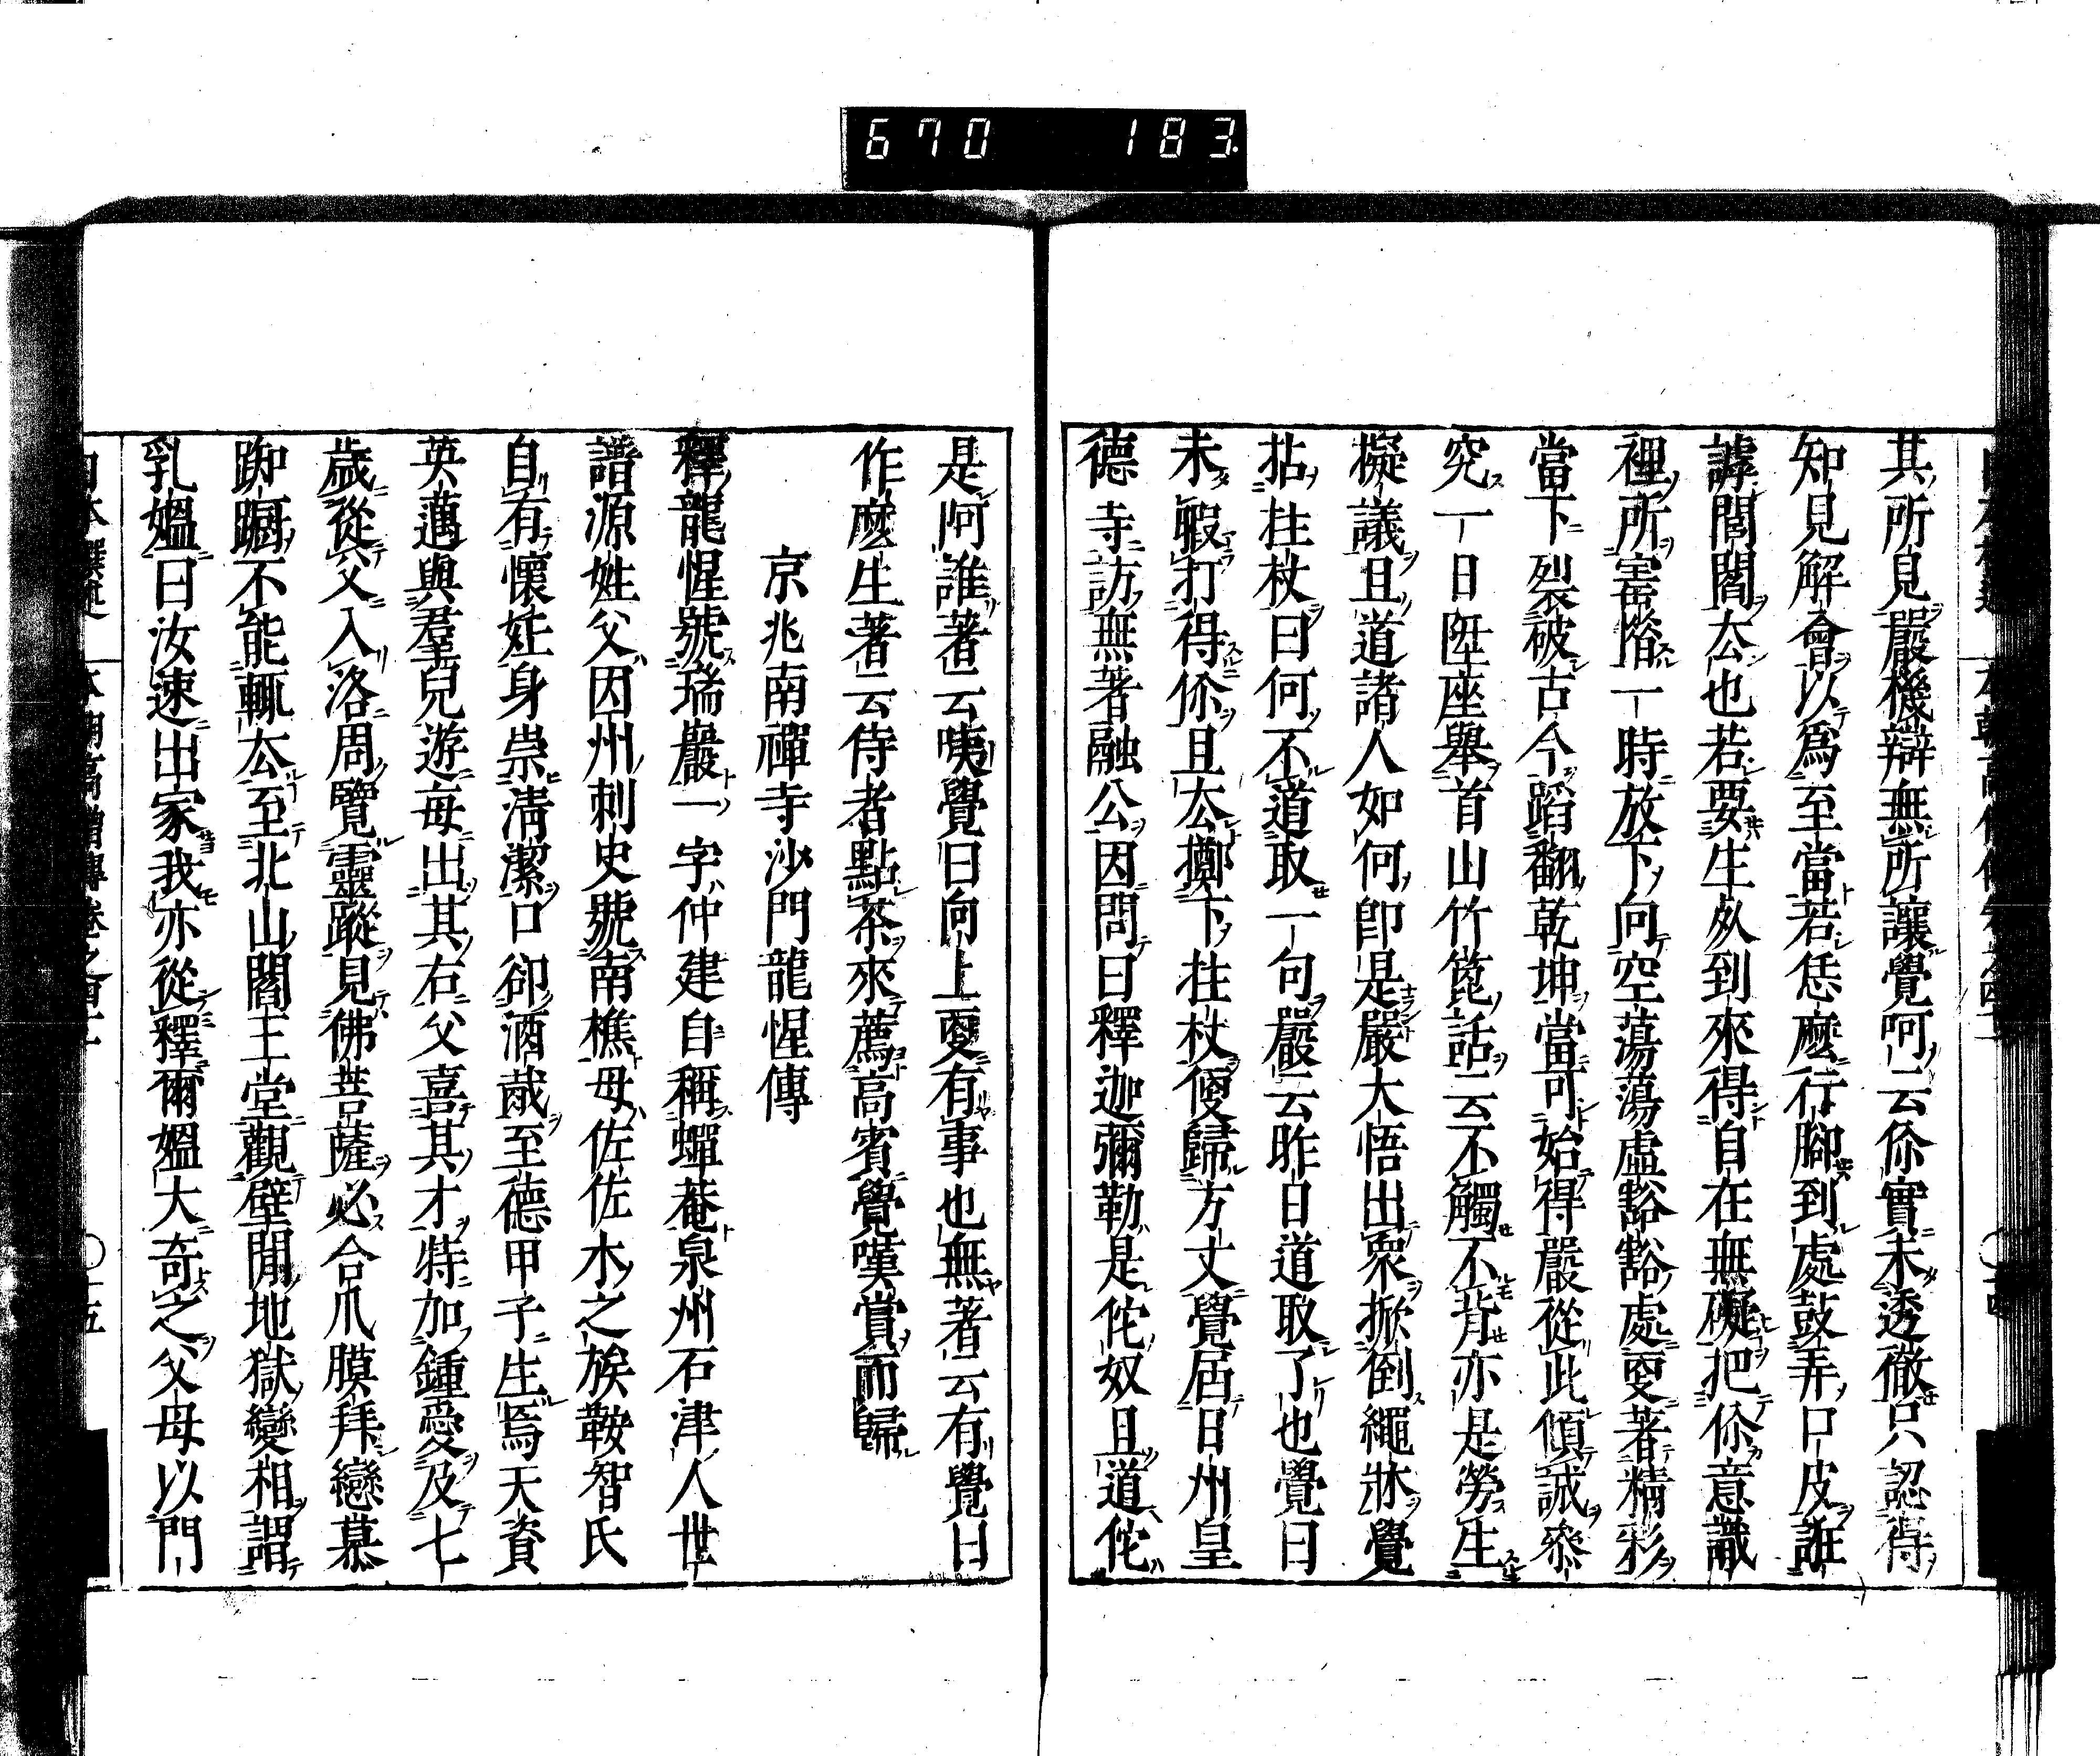 670 183.
其所見嚴機辯無所讓覺呵云你實未透徹只認得
知見解會以爲至當若恁麽行脚到處鼓弄口皮誑
謼閭閻厺也若要生死到來得自在無礙把你意識
裡所畜𨻶一時放下向空蕩蕩虛豁豁處更著精彩
當下裂破古今蹈翻乾坤當可始得嚴從此傾誠參
究一日陞座舉首山竹篦話云不觸不背亦是勞生
擬議且道諸人如何卽是嚴大悟出衆掀倒繩牀覺
拈柱杖曰何不道取一句嚴云昨日道取了也覺曰
未暇打得你且厺擲下拄杖便歸方丈覺居日州皇
德寺訪無著融公因問曰釋迦彌勒是佗奴且道佗
是阿誰著云咦覺曰向上更有事也無著云有覺曰
作麽生著云侍者點茶來薦高賓覺嘆賞而歸
京兆南禪寺沙門龍惺傳
釋龍惺號瑞巖一字仲建自稱蟬菴泉州石津人世
譜源姓父因州刺史號南樵母佐佐木之族鞍智氏
自有懷妊身崇淸潔口卻酒胾至德甲子生焉天資
英邁與羣兒遊每出其右父喜其才特加鍾愛及七
歲從父入洛周覽靈蹤見佛菩薩必合爪膜拜戀慕
踟躕不能輒厺至北山閻王堂觀壁間地獄變相謂
乳媼曰汝速出家我亦從釋爾媼大奇之父母以門